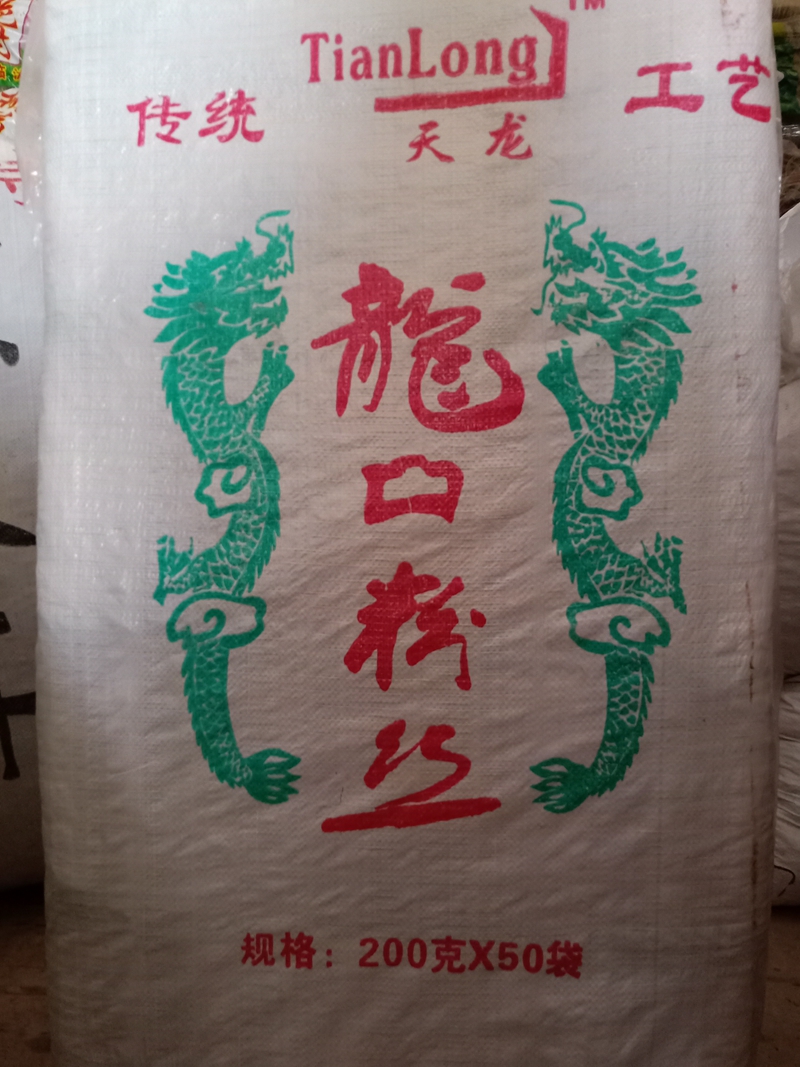 TianLong TM
传统 天龙 工艺
龍
口
粉
丝
规格：200克X50袋